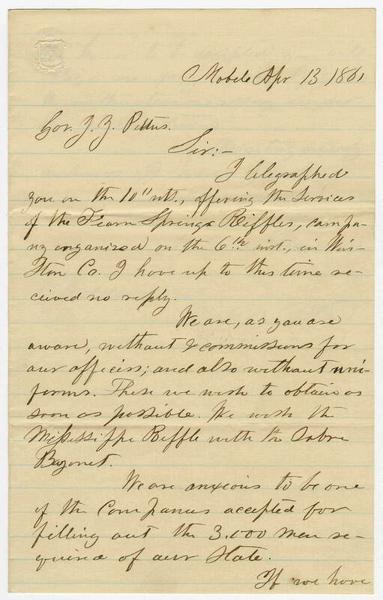 Mobile Apr 13 1861
Gov. J. J. Pettus.
Sir:-
I telegraphed
you on the 10" ult., offering the services
of the Fearn Springs Riffles, compa-
ny organized on the 6th inst., in Win-
ston Co. I have up to this time re-
cieved no reply.
We are, as you are
aware, without commissions for
our officers; and also without uni-
forms. These we wish to obtain as
soon as possible. We wish the
Mississippi Riffle with the Sabre
Bayonet.
We are anxious to be one
of the Companies accepted for
filling out the 3,000 men re-
quired of our State.
If we have